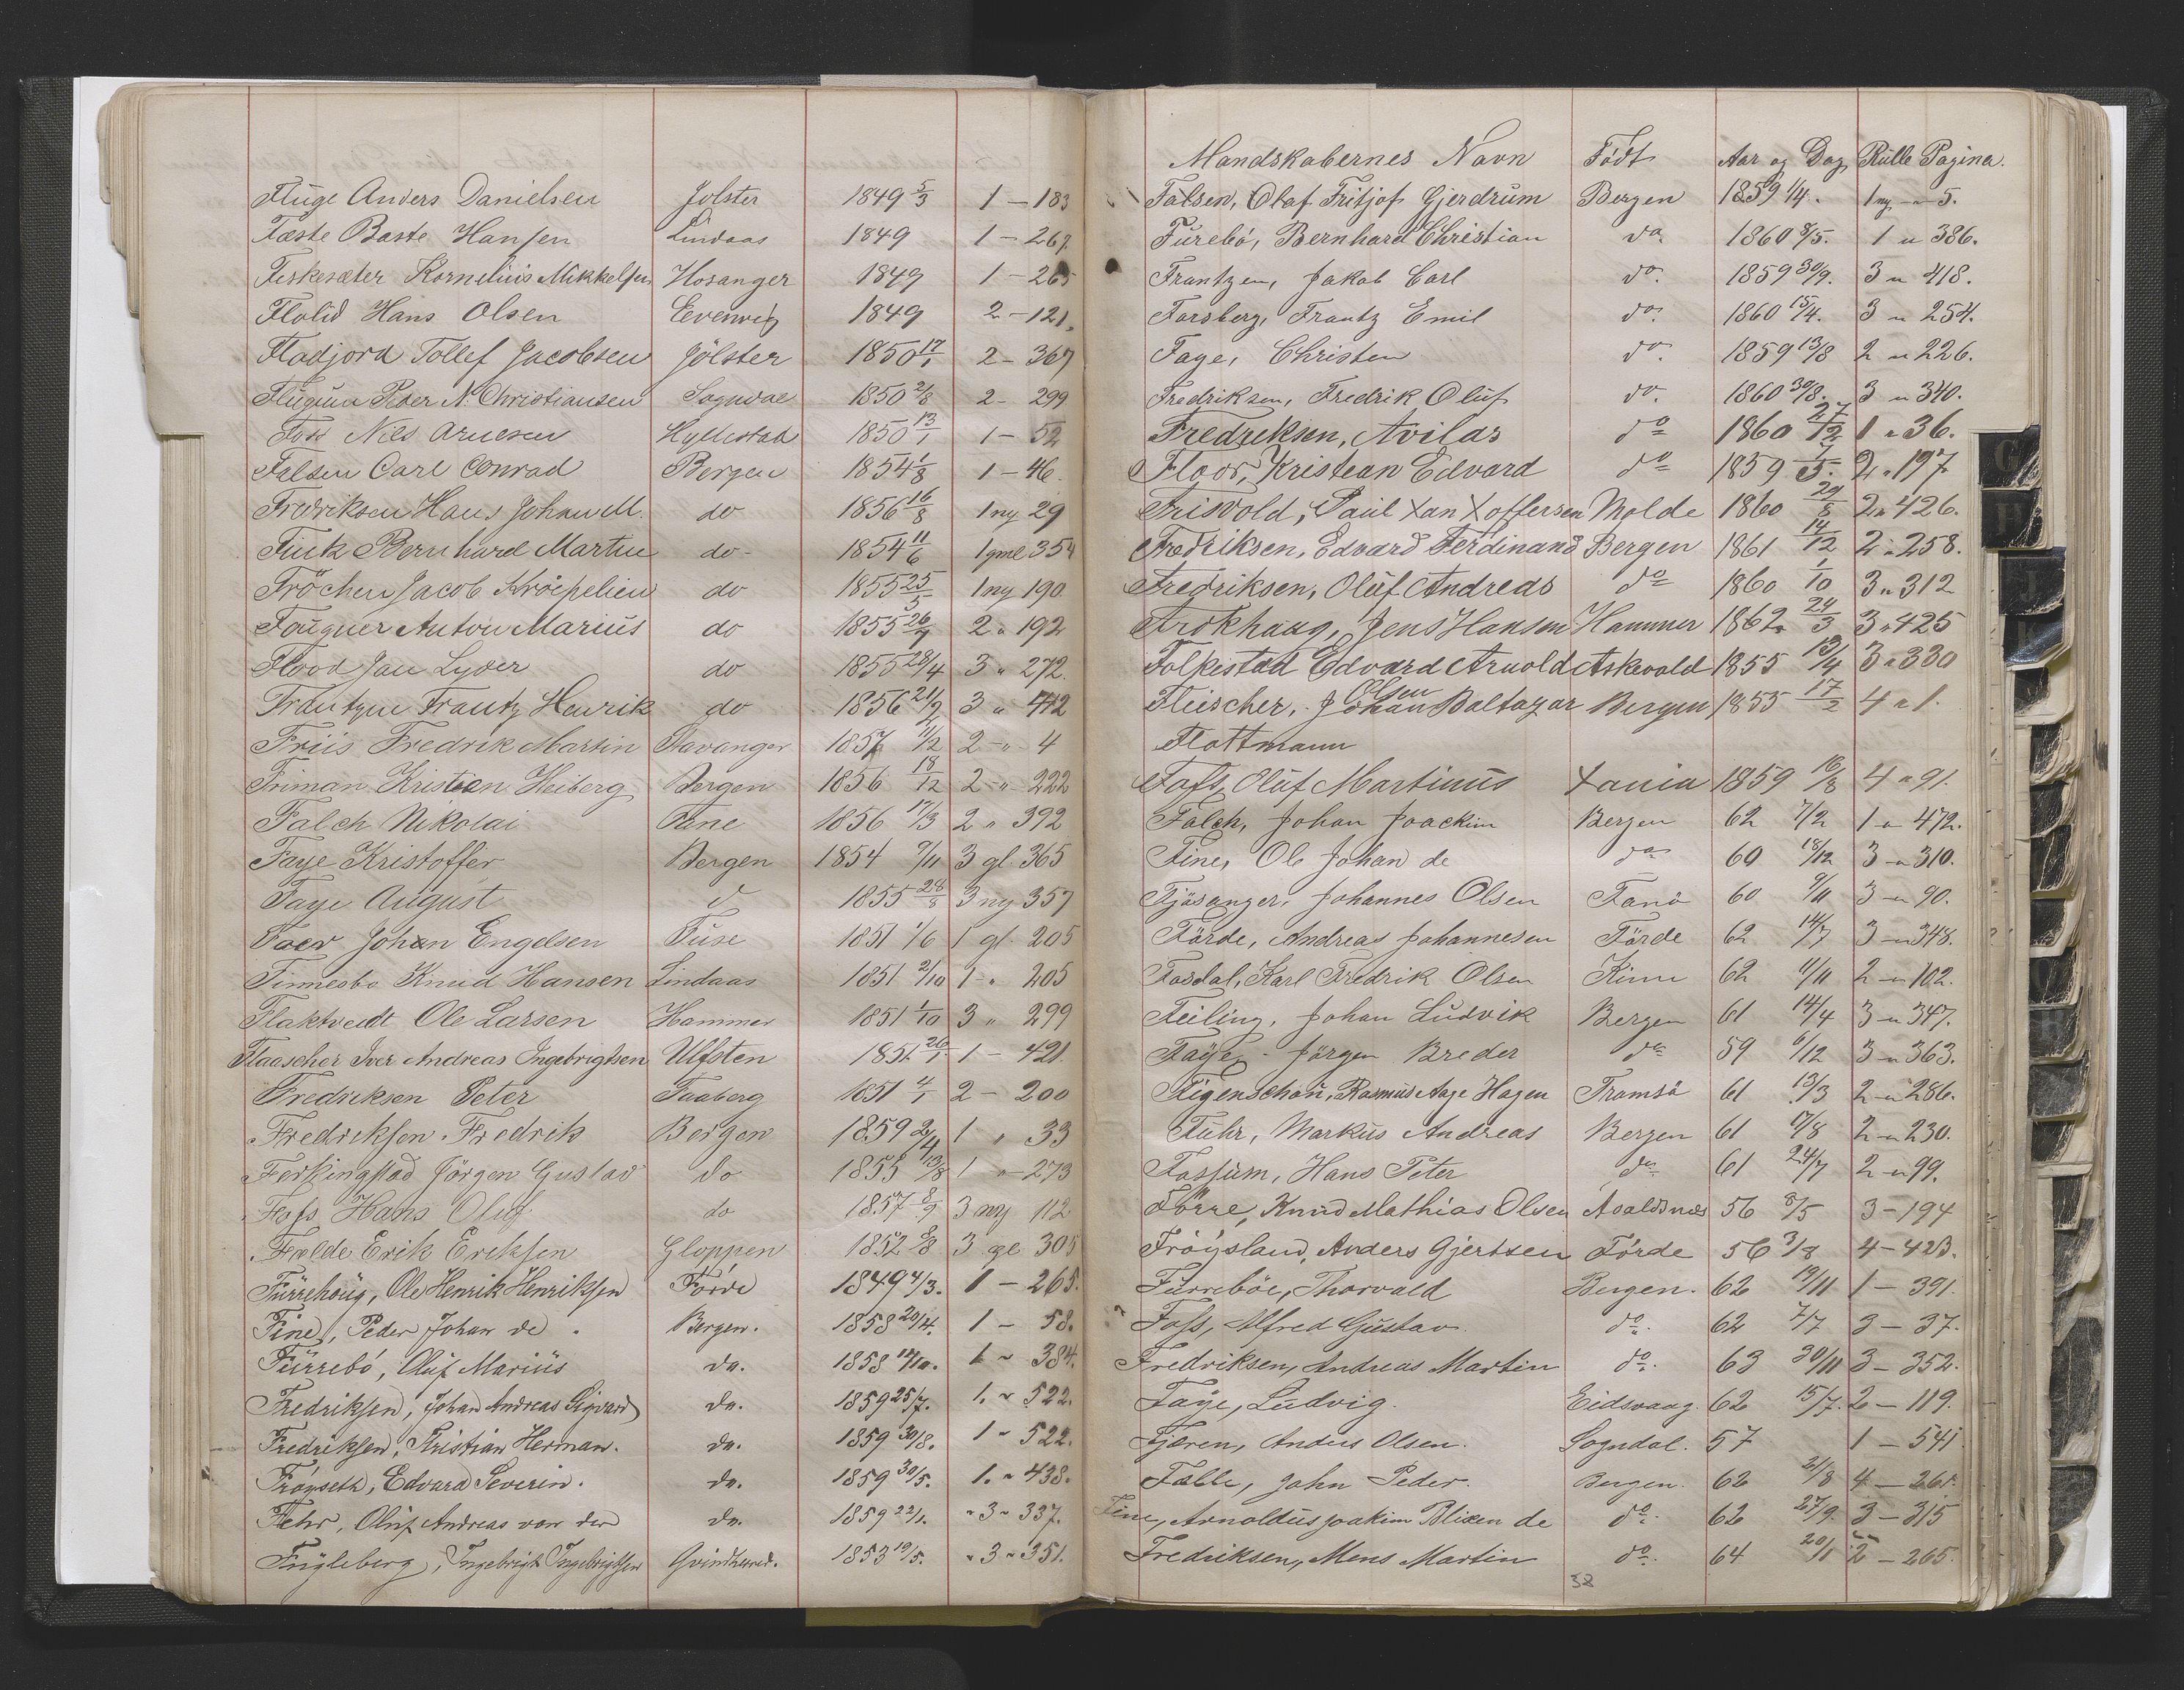 Fluge Anders Danielsen Jolster 1849 5/3 1 — 183
Fæste Baste Hansen Lindaas 1849 1 — 267.
Feskesæter Kornelius Mikkelsen Hosanger 1849 1 — 265
Flolid Hans Olsen Eevenvig 1849 2 — 121.
Fladjord Tollef Jacobsen Jölster 1850 17/1 2 — 367
Peder N. Christiansen Sogndal 1850 2/8 2 - 299
Foss Nils Arnesen Hyllestad 1850 13/1 1 — 52
Falsen Carl Conrad Bergen 1854 1/8 1 — 46.
Fredriksen Hans Johan M. do 1856 16/8 1 ny 29
Fink Bernhard Martin do - 1854 11/6 1 gml 354
Fröchen Jacob Kröepelien do 1855 25/5 1 ny 190
Fougner Anton Marius do 1855 26/7 2 " 192
Flood Jan Lyder do 1855 28/4 3 " 272.
Frantzen Frantz Henrik do 1856 21/9 3 " 412
Friis Fredrik Martin Stavanger 1857 11/2 2 — " 4
Friman Kristian Heiberg Bergen 1856 18/12 2 — " — 222
Falch Nikolai Fane 1856 17/3 2 " 392
Faye Kristoffer Bergen 1854 9/11 3 gl. 365
Faye August d 1855 28/8 3 ny 357
Johan Engelsen Fuse 1851 1/6 1 gl. 205
Finnesbo Knud Hansen Lindaas 1851 2/10 1 - " 205
Flaktvedt Ole Larsen Hammer 1851 1/10 3 " 299
Flaascher Iver Andreas Ingebrigtsen Ulfsten 1851 26/1 1 — 421.
Fredriksen Peter Faaberg 1851 4/1 2 — 200
Fredriksen Fredrik Bergen 1859 2/4 1 " 33
Ferkingstad Jörgen Gustav do 1855 13/8 1 " — 273
Foss Hans Oluf do 1857 8/9 3 ny 112
Fælde Erik Eriksen Gloppen 1852 8/8 3 gl 305
Fürrehoug, Ole Henrik Henriksen Förde 1849 4/3. 1 — 265.
Fine, Peder Johan de . Bergen. 1858 20/4. 1 — 58.
Fürrebö, Oluf Marius do. 1858 14/10. 1 " 384.
Fredriksen, Johan Andreas Sigvard do. 1859 25/7. 1. " 522.
Fredriksen, Kristian Herman. do. 1859 30/8. 1 " 522.
Fröyseth, Edvard Severin. do. 1859 30/5. 1. " 438.
Fehr, Oluf Andreas von der do. 1859 22/1. " 3 " 337.
Fugleberg, Ingebrigt Ingebrigtsen Qvindherred. 1853 19/5. " 3 " 351.
Mandskabernes Navn Födt Aar og Dag Rulle Pagina.
Falsen, Olaf Fritjof Gjerdrum Bergen 1859 1/4. 1 ny — " 5.
Furebö, Bernhard Christian do. 1860 8/5. 1 " 386.
Frantzen, Jakob Carl do. 1859 30/9. 3 " 418.
Forsberg, Frantz Emil do. 1860 15/4. 3 " 254.
Faye, Christen do. 1859 13/8 2 " 226.
Fredriksen, Fredrik Oluf do. 1860 30/8. 3 " 340.
Fredriksen, Avilas do 1860 27/12 1 " 36.
Floor, Kristean Edvard do 1859 7/5. 2 " 197
Frisvold, Paul Xan Xoffersen Molde 1860 29/8 2 " 426.
Fredriksen, Edvard Ferdinand Bergen 1861 14/12 2 " 258.
Fredriksen, Oluf Andreas do 1860 1/10 3 " 312
Frökhaug, Jens Hansen Hammer 1862 24/3 3 " 425
Folkestad Edvard Arnold Askevold 1855 13/4 3 " 330
Olsen
Fleischer, Johan Baltazar Bergen 1855 17/2 4 " 1.
Flottmann
Foss, Oluf Martinus Xania 1859 16/8 4 " 91.
Falch, Johan Joachim Bergen 62 7/2 1 " 472.
Fine, Ole Johan de do 60 18/12 3 — " 310.
Fjösanger, Johannes Olsen Fanö 60 9/11 3 — " 90.
Förde, Andreas Johannesen Förde 62 14/7 3 — " 348.
Fosdal, Karl Fredrik Olsen Kinn 62 11/11 2 — " 102.
Feiling, Johan Ludvik Bergen 61 14/4 3 — " 347.
Faye, Jörgen Breder do 59 6/12 3 — " 363.
Figenschou, Rasmus Aage Hagen Tromsö 61 13/3 2 — " 286.
Fuhr, Markus Andreas Bergen 61 17/8 2 — " 230.
Fossum, Hans Peter do 61 24/7 2 — " 99.
Förre, Knud Mathias Olsen Avaldsnæs 56 8/5 3 — 194
Fröysland, Anders Gjertsen Förde 56 3/8 4 — 423.
Furreböe, Thorvald Bergen. 62 19/11 1 — 391.
Foss, Alfred Gustav. do. 62 7/7 3 — 37.
Fredriksen, Andreas Martin do. 63 30/11 3 — 352.
Faye, Ludvig. Eidsvaag. 62 15/7. 2 — 119.
Fjæren, Anders Olsen. Sogndal. 57 1 — 541
Falle, John Peder. Bergen. 62 21/8 4 — 261.
Fine, Arnoldus Joakim Blixen de do. 62 27/9. 3 — 315
Fredriksen, Mens Martin do. 64 20/1 2 — 265.
38